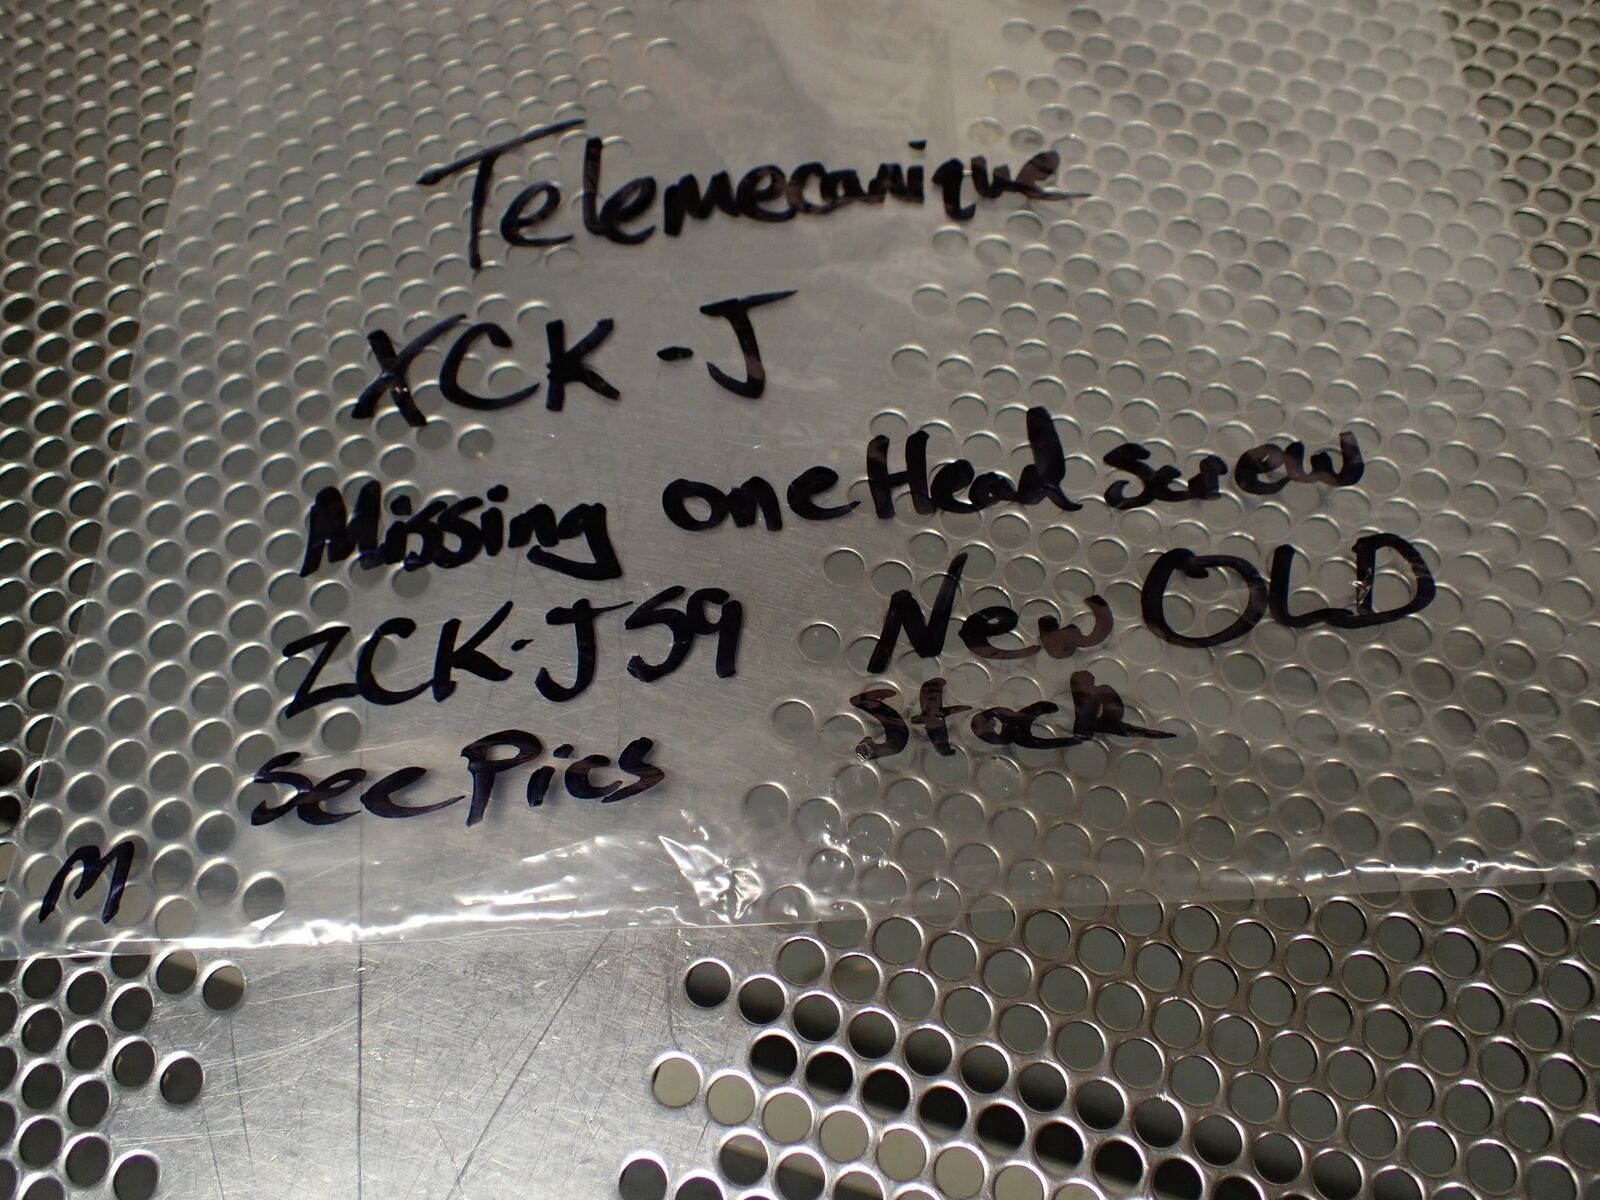 Telemecanique
XCK-J
Missing one Head screw
ZCK-JS9
New OLD
Stock
See Pics
M